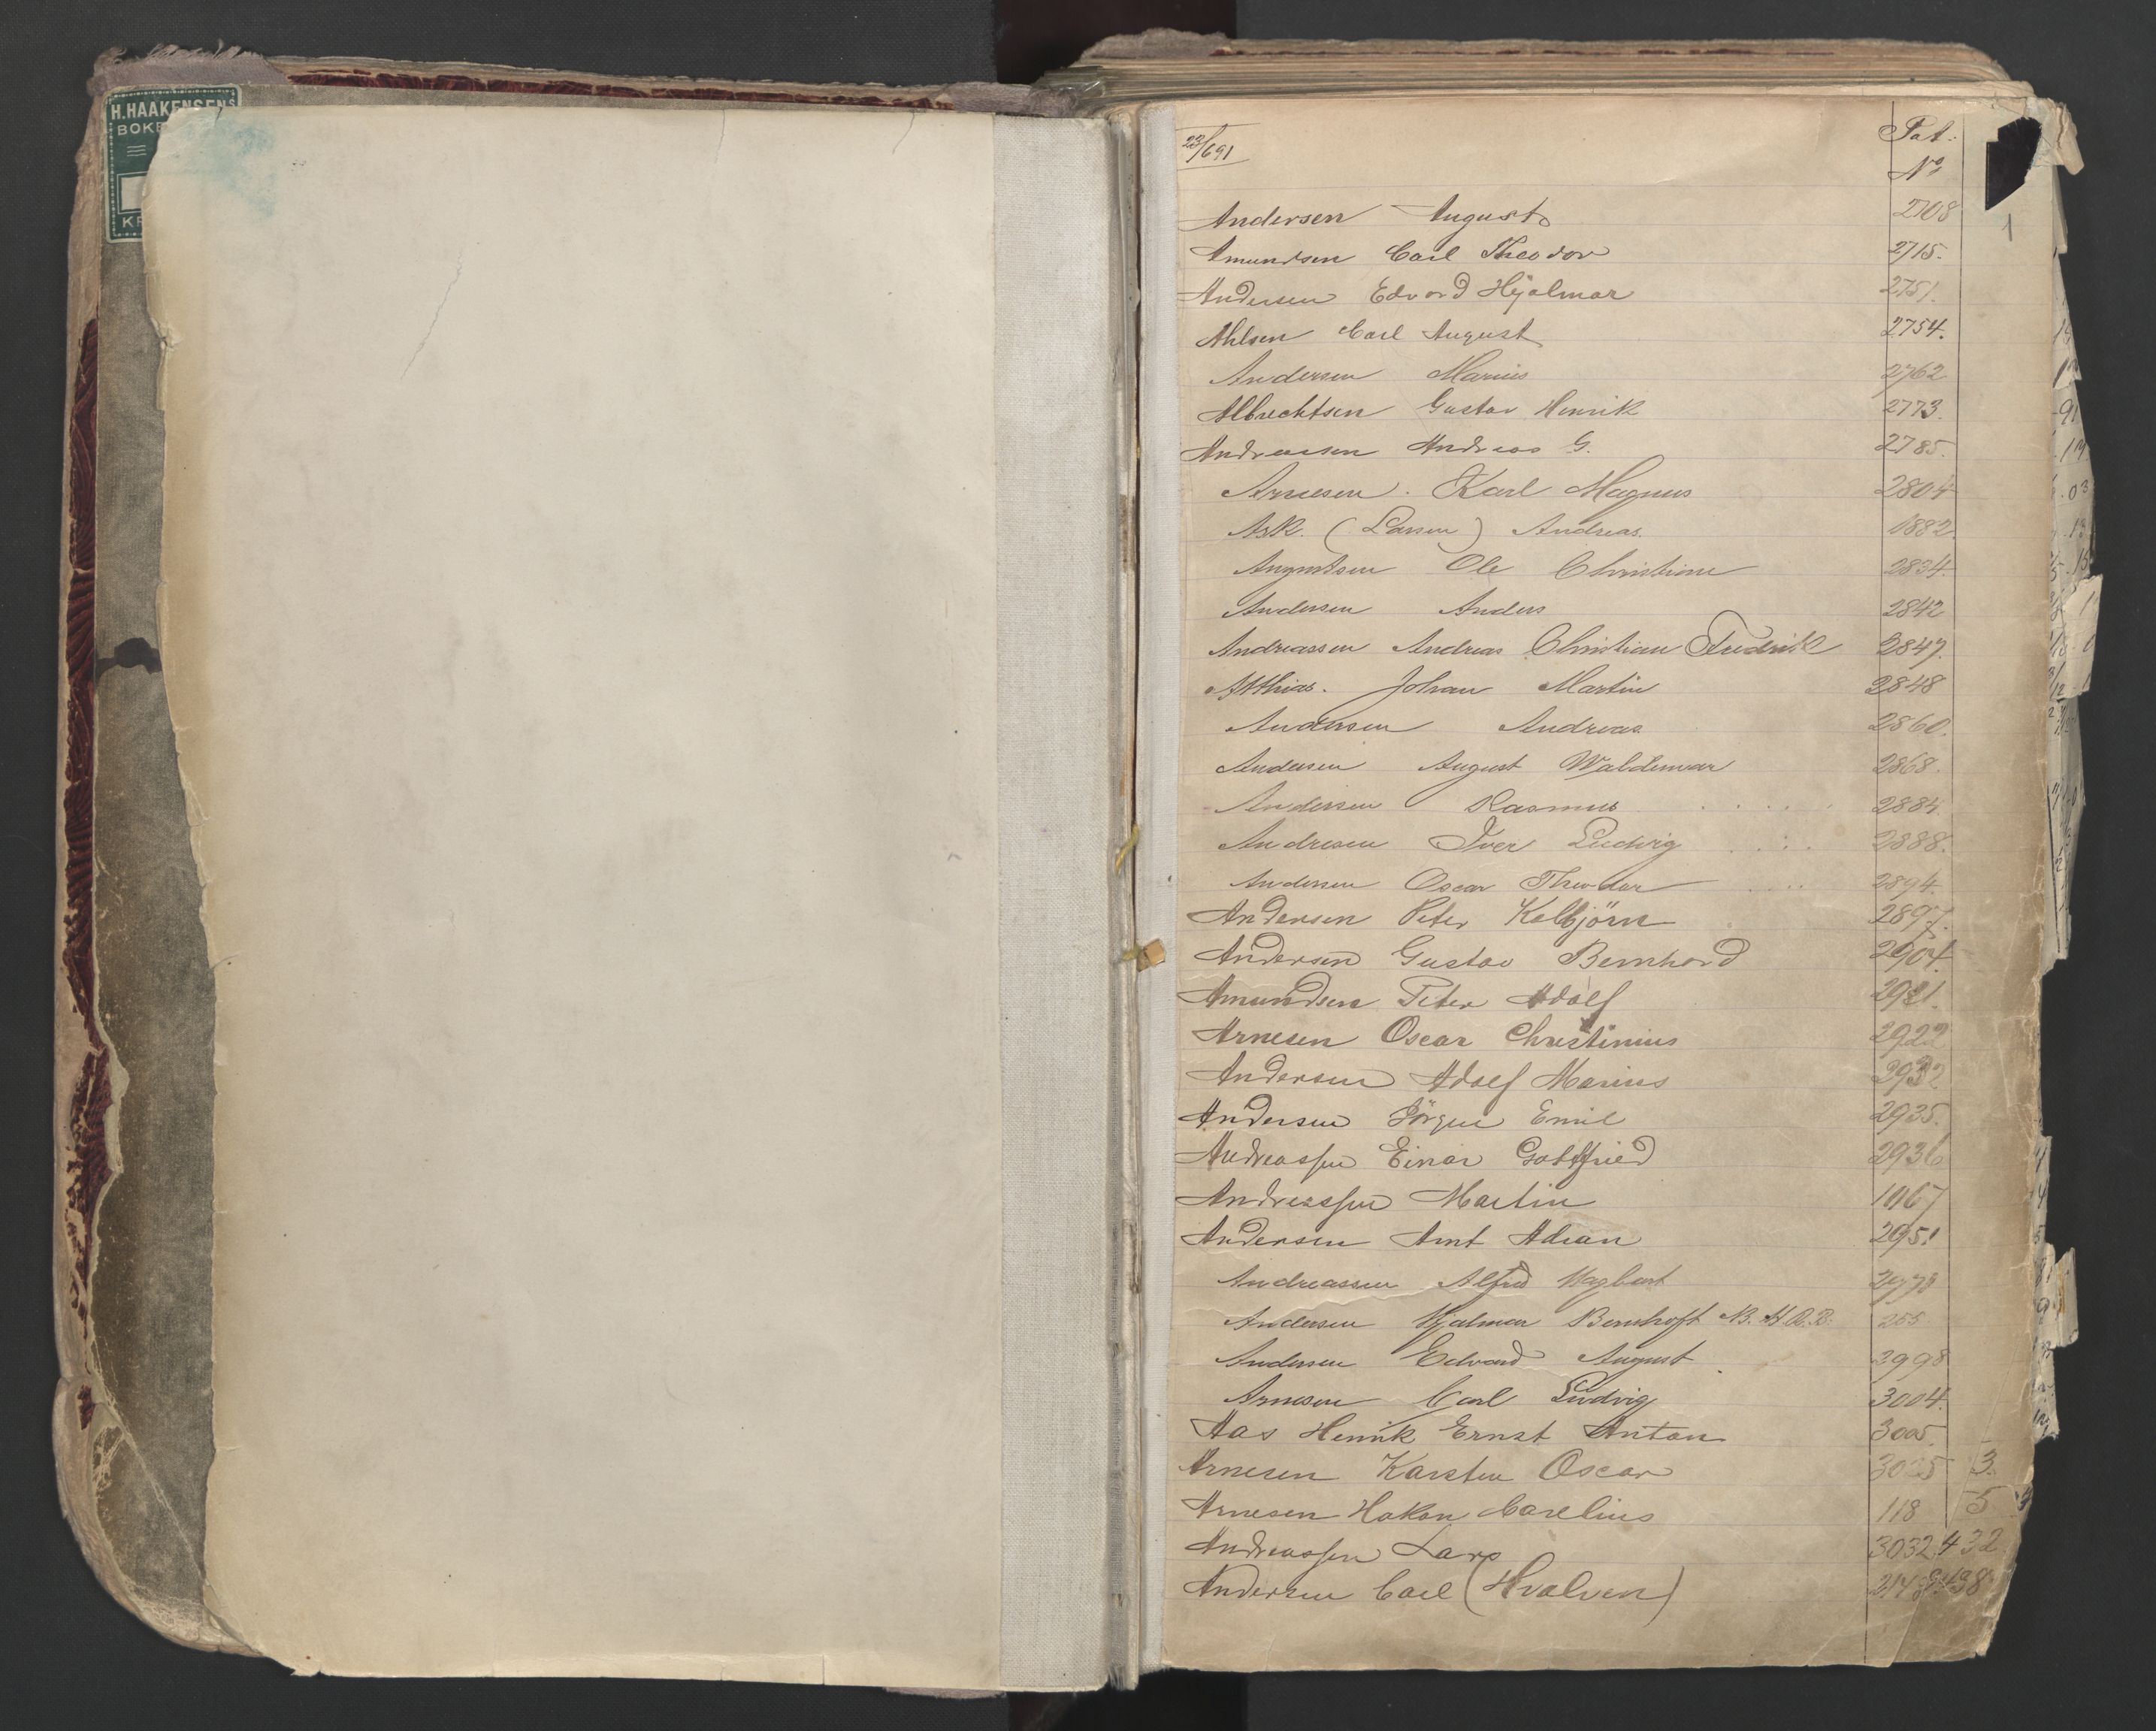 H. HAAKENSENS
BOKB
KR
23/691
Pat.
No
1
Andersen August 2708
Amundsen Carl Theodor 2715.
Andersen Edvard Hjalmar 2751.
Ahlsen Carl August 2754.
Andersen Marius 2762
Albrechtsen Gustav Henrik 2773.
Andreasen Andreas G. 2785.
Arnesen. Karl Magnus 2804
Ask. (Larsen) Andreas. 1882
Augustsen Ole Christian 2834
Andersen Anders 2842
Andreassen Andreas Christian Fredrik 2847.
Atthias. Johan Martin 2848
Andersen Andreas 2860.
Andersen August Waldemar 2868.
Andersen Rasmus 2884
Andresen Iver Ludvig 2888.
Andersen Oscar Theodor 2894.
Andersen Peter Kolbjörn 2897.
Andersen Gustav Bernhard 2904.
Amundsen Peter Adolf 2921.
Arnesen Oscar Christinius 2922
Andersen Adolf Marius 2932
Andersen Jörgen Emil 2935.
Andreassen Einar Gottfried 2936
Andreassen Martin 1067
Andersen Arnt Adrian 2951
Andreassen Alfred
Andersen Hjalmar Bernhoft N. A. R. B. 255
Andersen Edvard August 2998
Arnesen Carl Ludvig 3004.
Aas Henrik Ernst Anton 3005.
Arnesen Karsten Oscar 3025 3.
Arnesen Hakon Carelius 118 5
Andreassen Lars 3032 432
Andersen Carl (Hvalven)